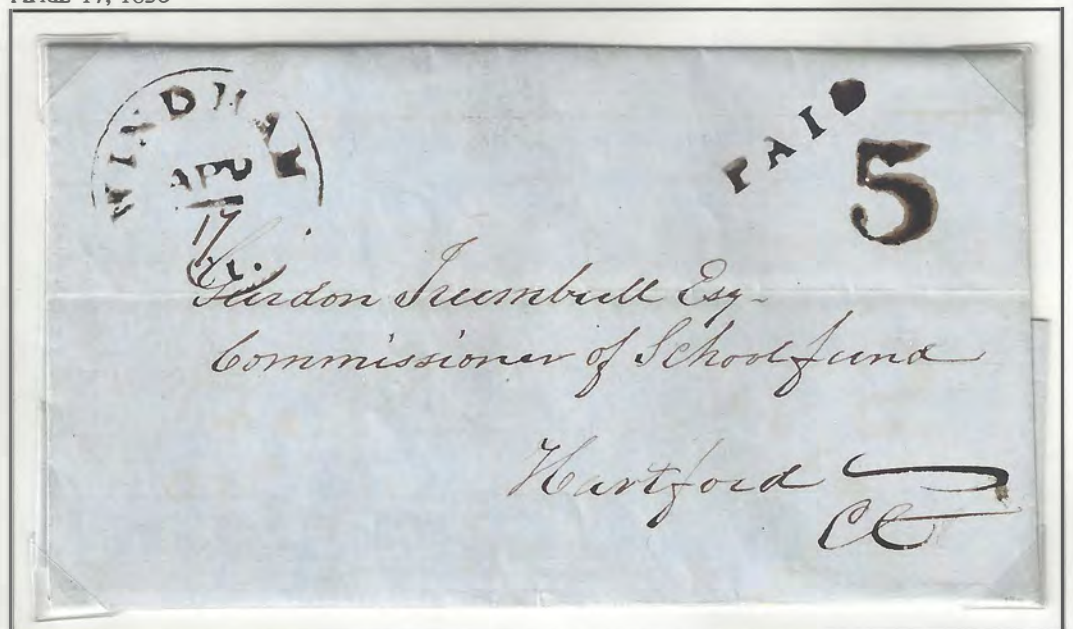 WINDHAM
APR
17
Ct.
PAID
5
Gurdon Trumbull Esq.
Commissioner of School fund
Hartford
Ct